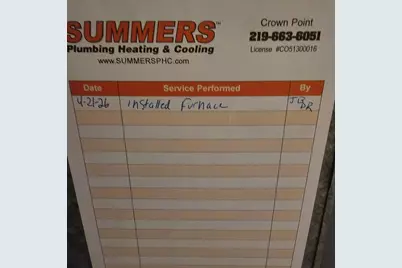 SUMMERS™
Plumbing Heating & Cooling
www.SUMMERSPHC.com
Crown Point
219-663-6051
License #CO51300016
Date Service Performed By
4-21-26 installed furnace